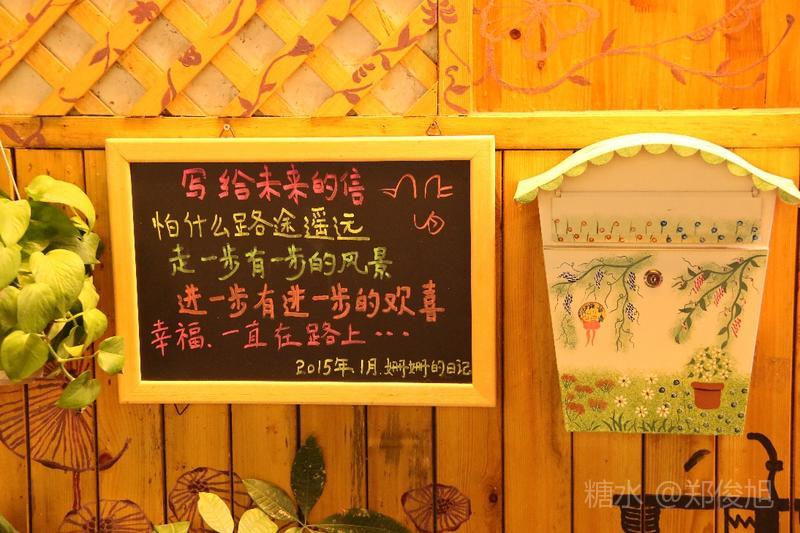 写给未来的信
怕什么路途遥远
走一步有一步的风景
进一步有进一步的欢喜
幸福、一直在路上…
2015年.1月.姗姗的日记
糖水 @郑俊旭